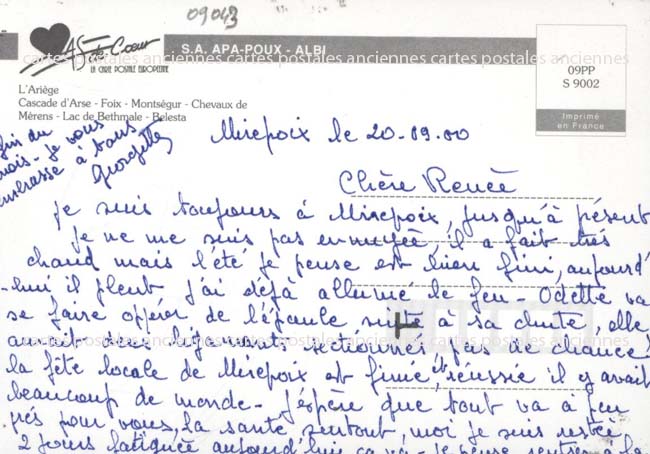 09043
As de Cœur
LA CARTE POSTALE EUROPEENNE
S.A. APA-POUX - ALBI
cartes postales anciennes cartes postales anciennes cartes postales anciennes
09PP
S 9002
Imprimé
en France
L'Ariège
Cascade d'Arse - Foix - Montségur - Chevaux de
Mérens - Lac de Bethmale - Belesta
Mirepoix le 20-09.00
Chère Renée
Je suis toujours à Mirepoix, jusqu'à présent
je ne me suis pas ennuyée, il a fait très
chaud mais l'été je pense est bien fini, aujourd'
-hui il pleut j'ai déjà allumé le feu - Odette va
se faire opérer de l'épaule suite à sa chute, elle
avait des ligaments sectionnés, pas de chance!
cartes postales anciennes cartes postales anciennes cartes postales anciennes
la fête locale de Mirepoix est finie et réussie il y avait
beaucoup de monde - J'espère que tout va à peu
près pour vous, la santé surtout, moi je suis restée
2 jours fatiguée aujourd'hui ça va - Je pense rentrer à la
fin du
mois - je vous
embrasse à tous
Georgette